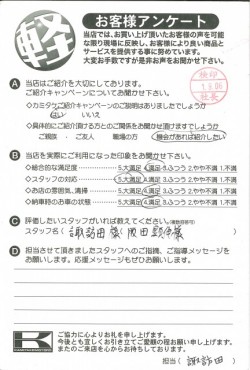 軽
お客様アンケート
当店では、お買い上げ頂いたお客様の声を可能
な限り現場に反映し、お客様により良い商品と
サービスを提供する事に努めています。
大変お手数ですが是非お声をお聞かせ下さい。
検印
1.6.06
社長
A 当店はご紹介を大切にしております。
ご紹介キャンペーンについてお聞かせ下さい。
◇カミタケご紹介キャンペーンのご説明はありましたでしょうか
はい いいえ
◇具体的にご紹介頂ける方とのご関係をお聞かせ頂けますでしょうか
ご親族 ・ ご友人 ・ 職場の方 ・ 機会があれば紹介したい
B 当店を実際にご利用になった印象をお聞かせ下さい。
◇総合的な満足度 5.大満足 4.満足 3.ふつう 2.やや不満 1.不満
◇スタッフの対応 5.大満足 4.満足 3.ふつう 2.やや不満 1.不満
◇お店の雰囲気、清掃 5.大満足 4.満足 3.ふつう 2.やや不満 1.不満
◇納車時のお車の状態 5.大満足 4.満足 3.ふつう 2.やや不満 1.不満
C 評価したいスタッフがいれば教えてください。(複数回答可)
スタッフ名( 諏訪田
D 担当させて頂きましたスタッフへのご指摘、ご指導メッセージを
お願いします。応援メッセージもぜひお願いします。
ご協力に心よりお礼を申し上げます。
今後とも宜しくお引き立てご愛顧の程お願い申し上げます。
またのご来店を心からお待ちしております。
担当( 諏訪田 )